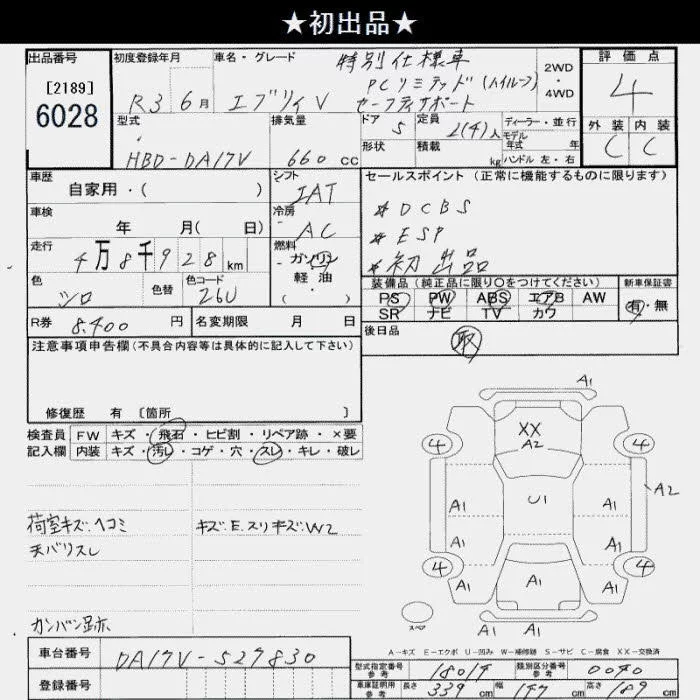 ★初出品★
出品番号
[2189]
6028
初度登録年月
R3 6月
車名・グレード
エブリィV
特別仕様車
PCリミテッド(ハイルーフ)
セーフティサポート
2WD
・
4WD
評価点
4
外装 内装
C C
型式
HBD-DA17V
排気量
660 cc
ドア 5
形状
定員 2(4)人
積載 kg
ディーラー・並行
モデル
年式 年
ハンドル 左・右
車歴
自家用・( )
シフト
IAT
車検
年 月( 日)
冷房
AC
走行
4万8千928km
燃料
ガソリン
軽・油
( )
色
シロ
色替
色コード
26U
R券 8,400 円
名変期限 月 日
セールスポイント (正常に機能するものに限ります)
* DCBS
* ESP
* 初出品
装備品 (純正品に限り○をつけてください)
PS PW ABS エアB AW
SR ナビ TV カワ
新車保証書
有・無
後日品
取
注意事項申告欄 (不具合内容等は具体的に記入して下さい)
修復歴 有 [箇所 ]
検査員
記入欄
FW キズ・飛石・ヒビ割・リペア跡・×要
内装 キズ・汚レ・コゲ・穴・スレ・キレ・破レ
荷室キズ、ヘコミ
天バリスレ
カンバン跡
キズ、E、スリキズ、W2
A1
XX
A2
4 4
A1 U1 A1 A2
A1 A1
4 4
A1 A1 A1
スペア
A1 A1
A-キズ E-エクボ U-凹み W-補修跡 S-サビ C-腐食 XX-交換済
車台番号
DA17V-527830
登録番号
型式指定番号
参考
18014
類別区分番号
参考
0040
車庫証明用
参考
長さ 339 cm 幅 147 cm 高さ 189 cm